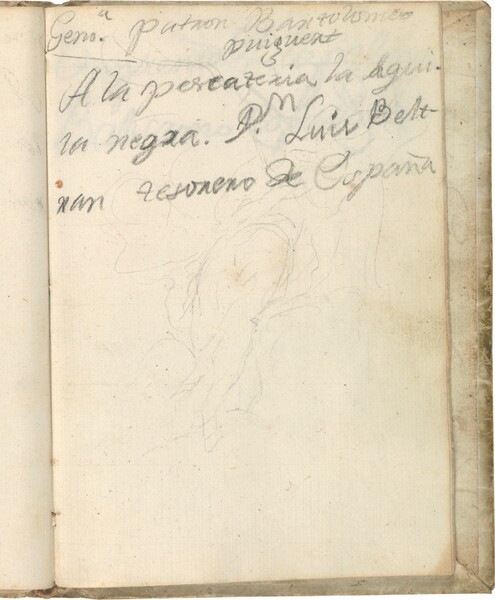 Geno.ª patron Bartolomeo
puiguert
A la pescateria la Agui-
la negra. D.n Luis Belt-
ran tesorero de España